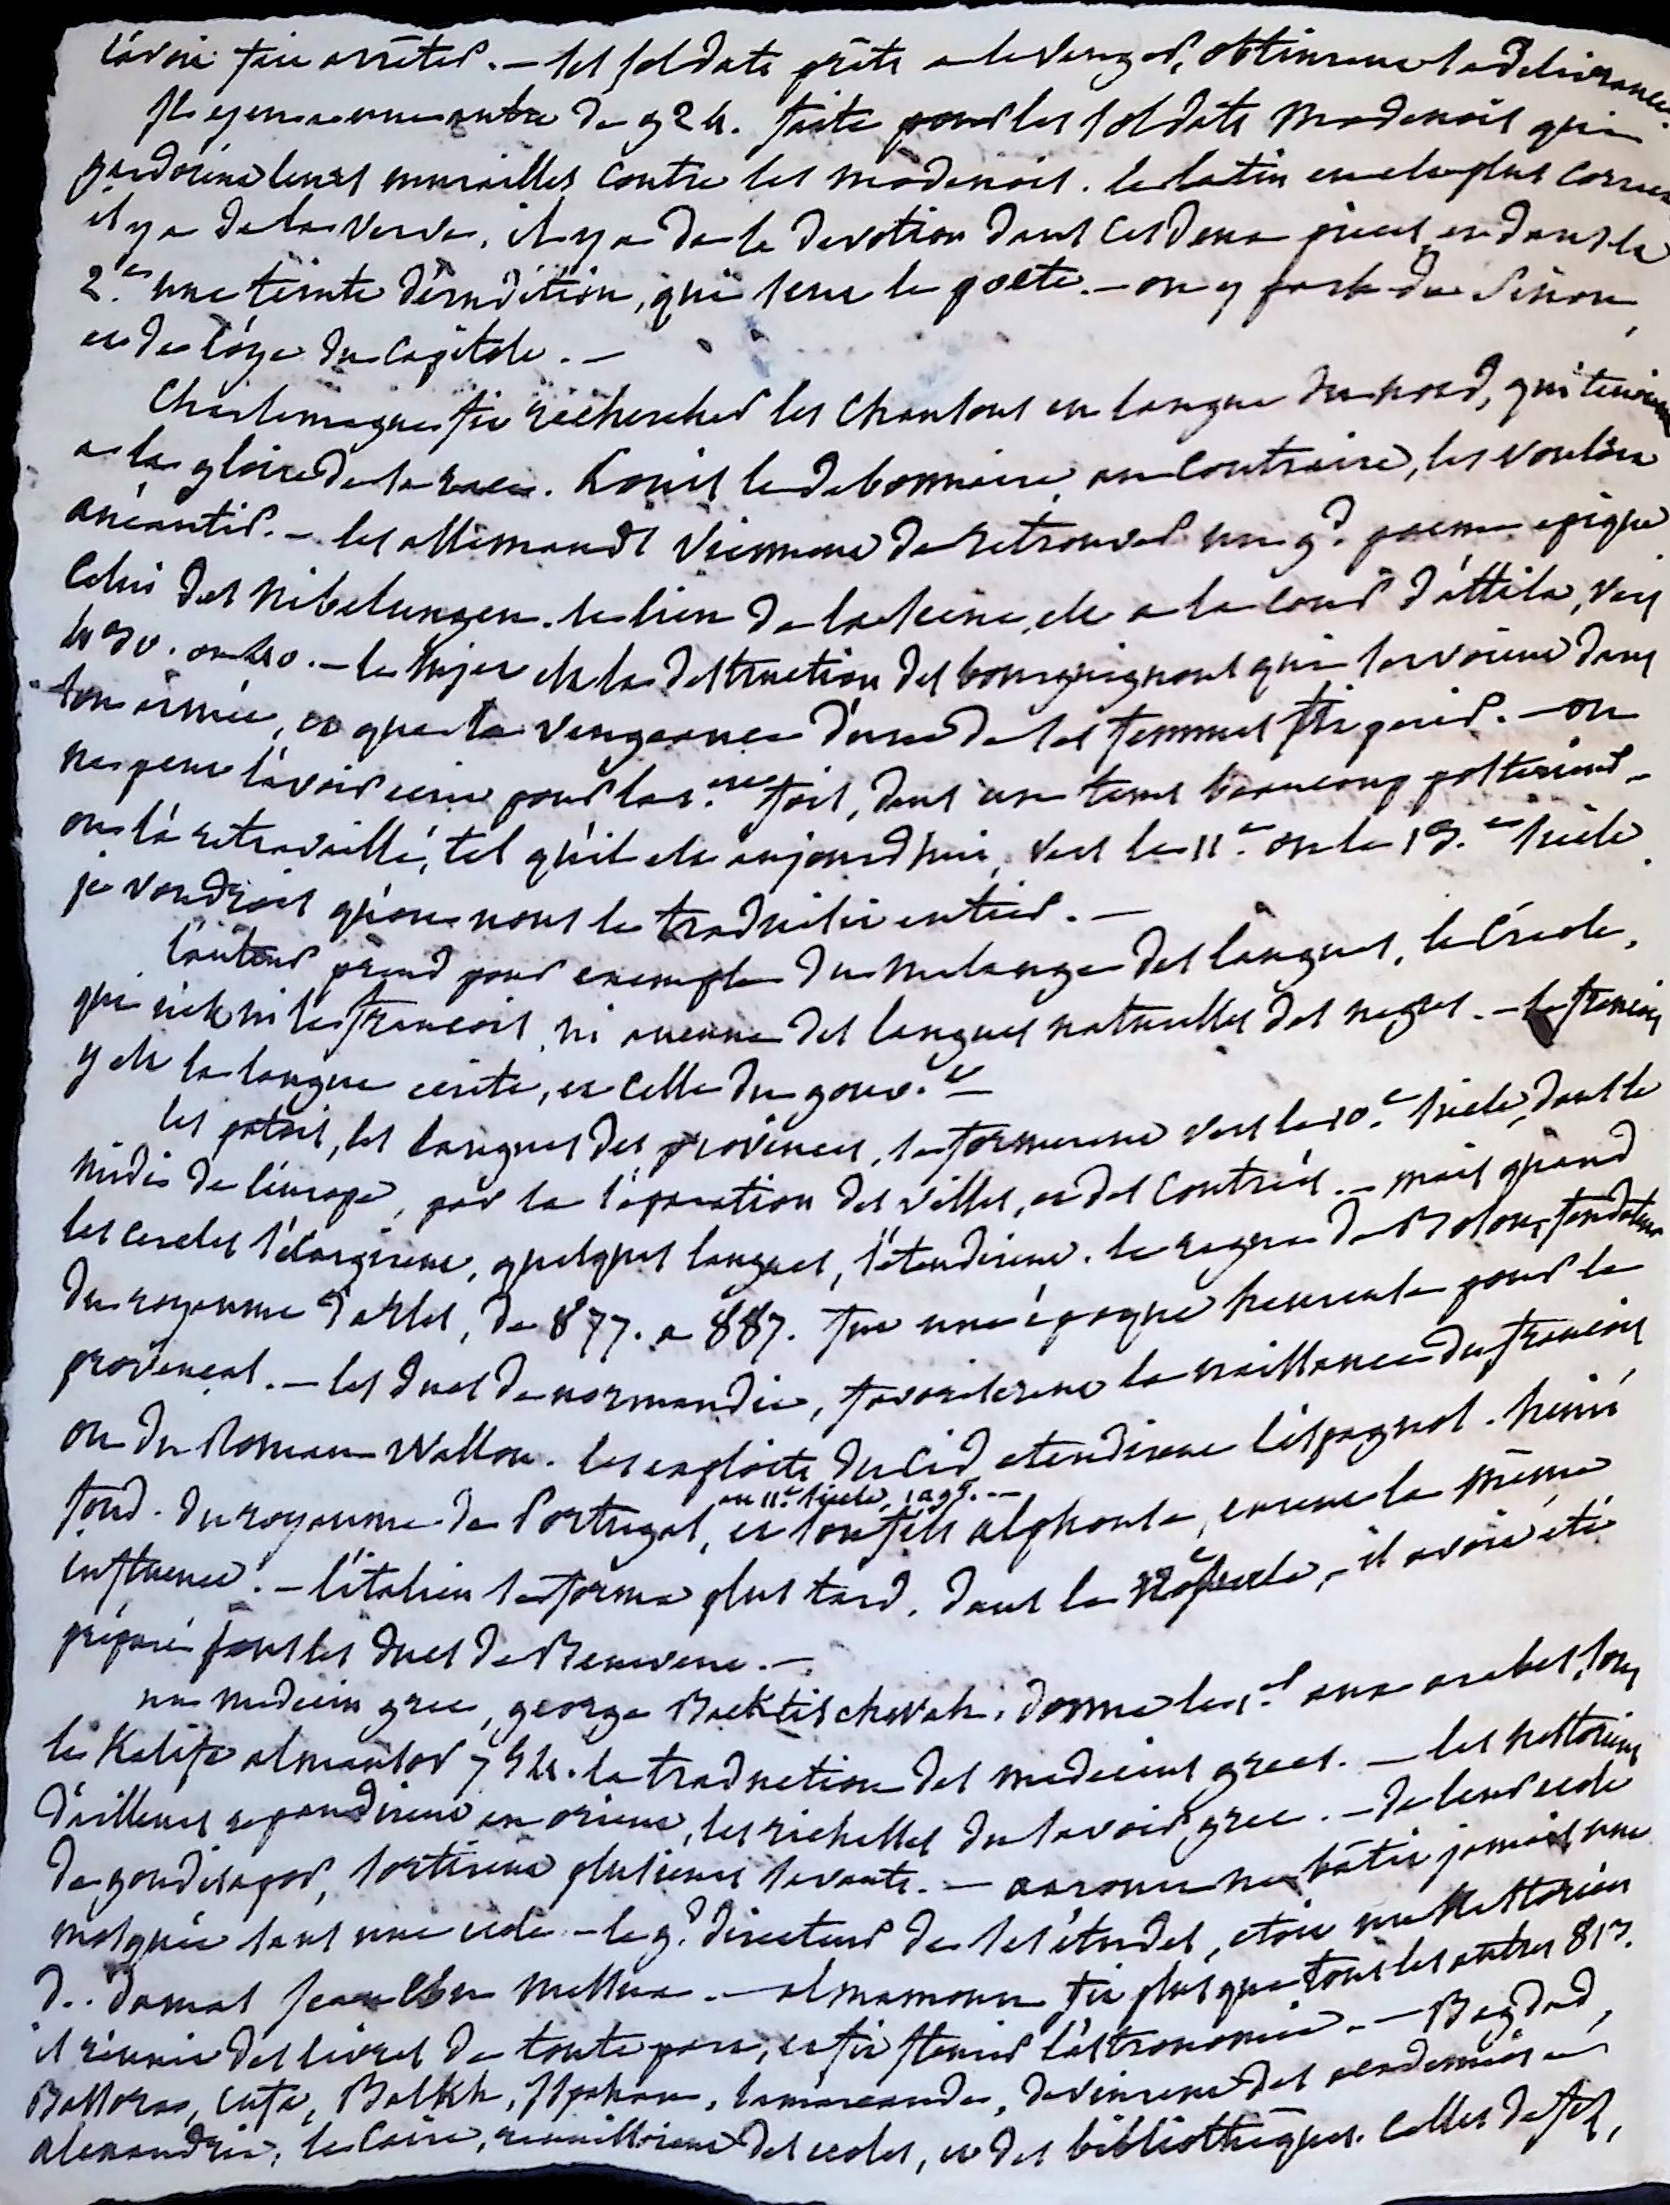 l'avoit fait arrêter. — les soldats prêts a le venger, obtinrent la delivrance.
Il y en a une autre de 924. faite pour les soldats modenois qui
gardoient leurs murailles contre les modenois. le latin en est plus correct
il y a de la verve, il y a de la devotion dans ces deux pieces et dans la
2.e une teinte d'érudition, qui sent le poete. — on y parle de Sinon,
et de l'oye du capitole. —
Charlemagne fit rechercher les chansons en langue du nord, qui tenoient
a la gloire de sa race. Louis le debonnaire, au contraire, les voulut
anéantir. — les allemands viennent de retrouver un gd. poeme epique
celui des Nibelungen. le lieu de la scene, est a la cour d'attila, vers
430. ou 40. — le sujet est la destruction des bourguignons qui servoient dans
son armée, et que la vengeance d'une de ses femmes fit perir. — on
ne peut l'avoir ecrit pour la 1.ere fois, dans un tems beaucoup posterieur —
on l'a retravaillé, tel qu'il est aujourd'hui, vers le 11.e ou le 13.e siecle.
je voudrois qu'on nous le traduisit entier. —
L'auteur prend pour exemple du melange des langues, le Créole,
qui n'est ni le francois, ni aucune des langues naturelles des negres. — le francois
y est la langue ecrite, et celle du gouv.t —
les patois, les langues des provinces, se formerent vers le 10.e siecle, dans le
midi de l'europe, par la séparation des villes, et des contrées. — mais quand
les cercles s'élargirent, quelques langues, s'étendirent. le regne de Boson, fondateur
du royaume d'arles, de 877. a 887. fut une époque heureuse pour le
provencal. — les ducs de normandie, favoriserent la naissance du francois
ou du Roman Wallon. les exploits du Cid etendirent l'espagnol. henri
au 11.e siecle, 1095. —
fond. du royaume de Portugal, et son fils alphonse, eurent la même
influence. — l'italien se forma plus tard, dans le siecle, — il avoit eté
préparé sous les ducs de Benevent. —
un medecin grec, george Backtischwah, donna le 1.er aux arabes, sous
le Kalife almansor 754. la traduction des medecins grecs. — les nestoriens
d'ailleurs repandirent en orient, les richesses du savoir grec. — de leur ecole
de gondisapor, sortirent plusieurs savants. — aaroun ne batit jamais une
mosquée sans une ecole — le gd. directeur de ses études, etoit un Nestorien
de damas Jean Ebn Messua. — almamoun fit plus que tous les autres 813.
il réunit des livres de toute part, et fit fleurir l'astronomie. — Bagdad,
Bassora, cufa, Balkh, Ispahan, samarcande, devinrent des academies
alexandrie, le Caire, des ecoles, et des bibliothèques. celles de fez,